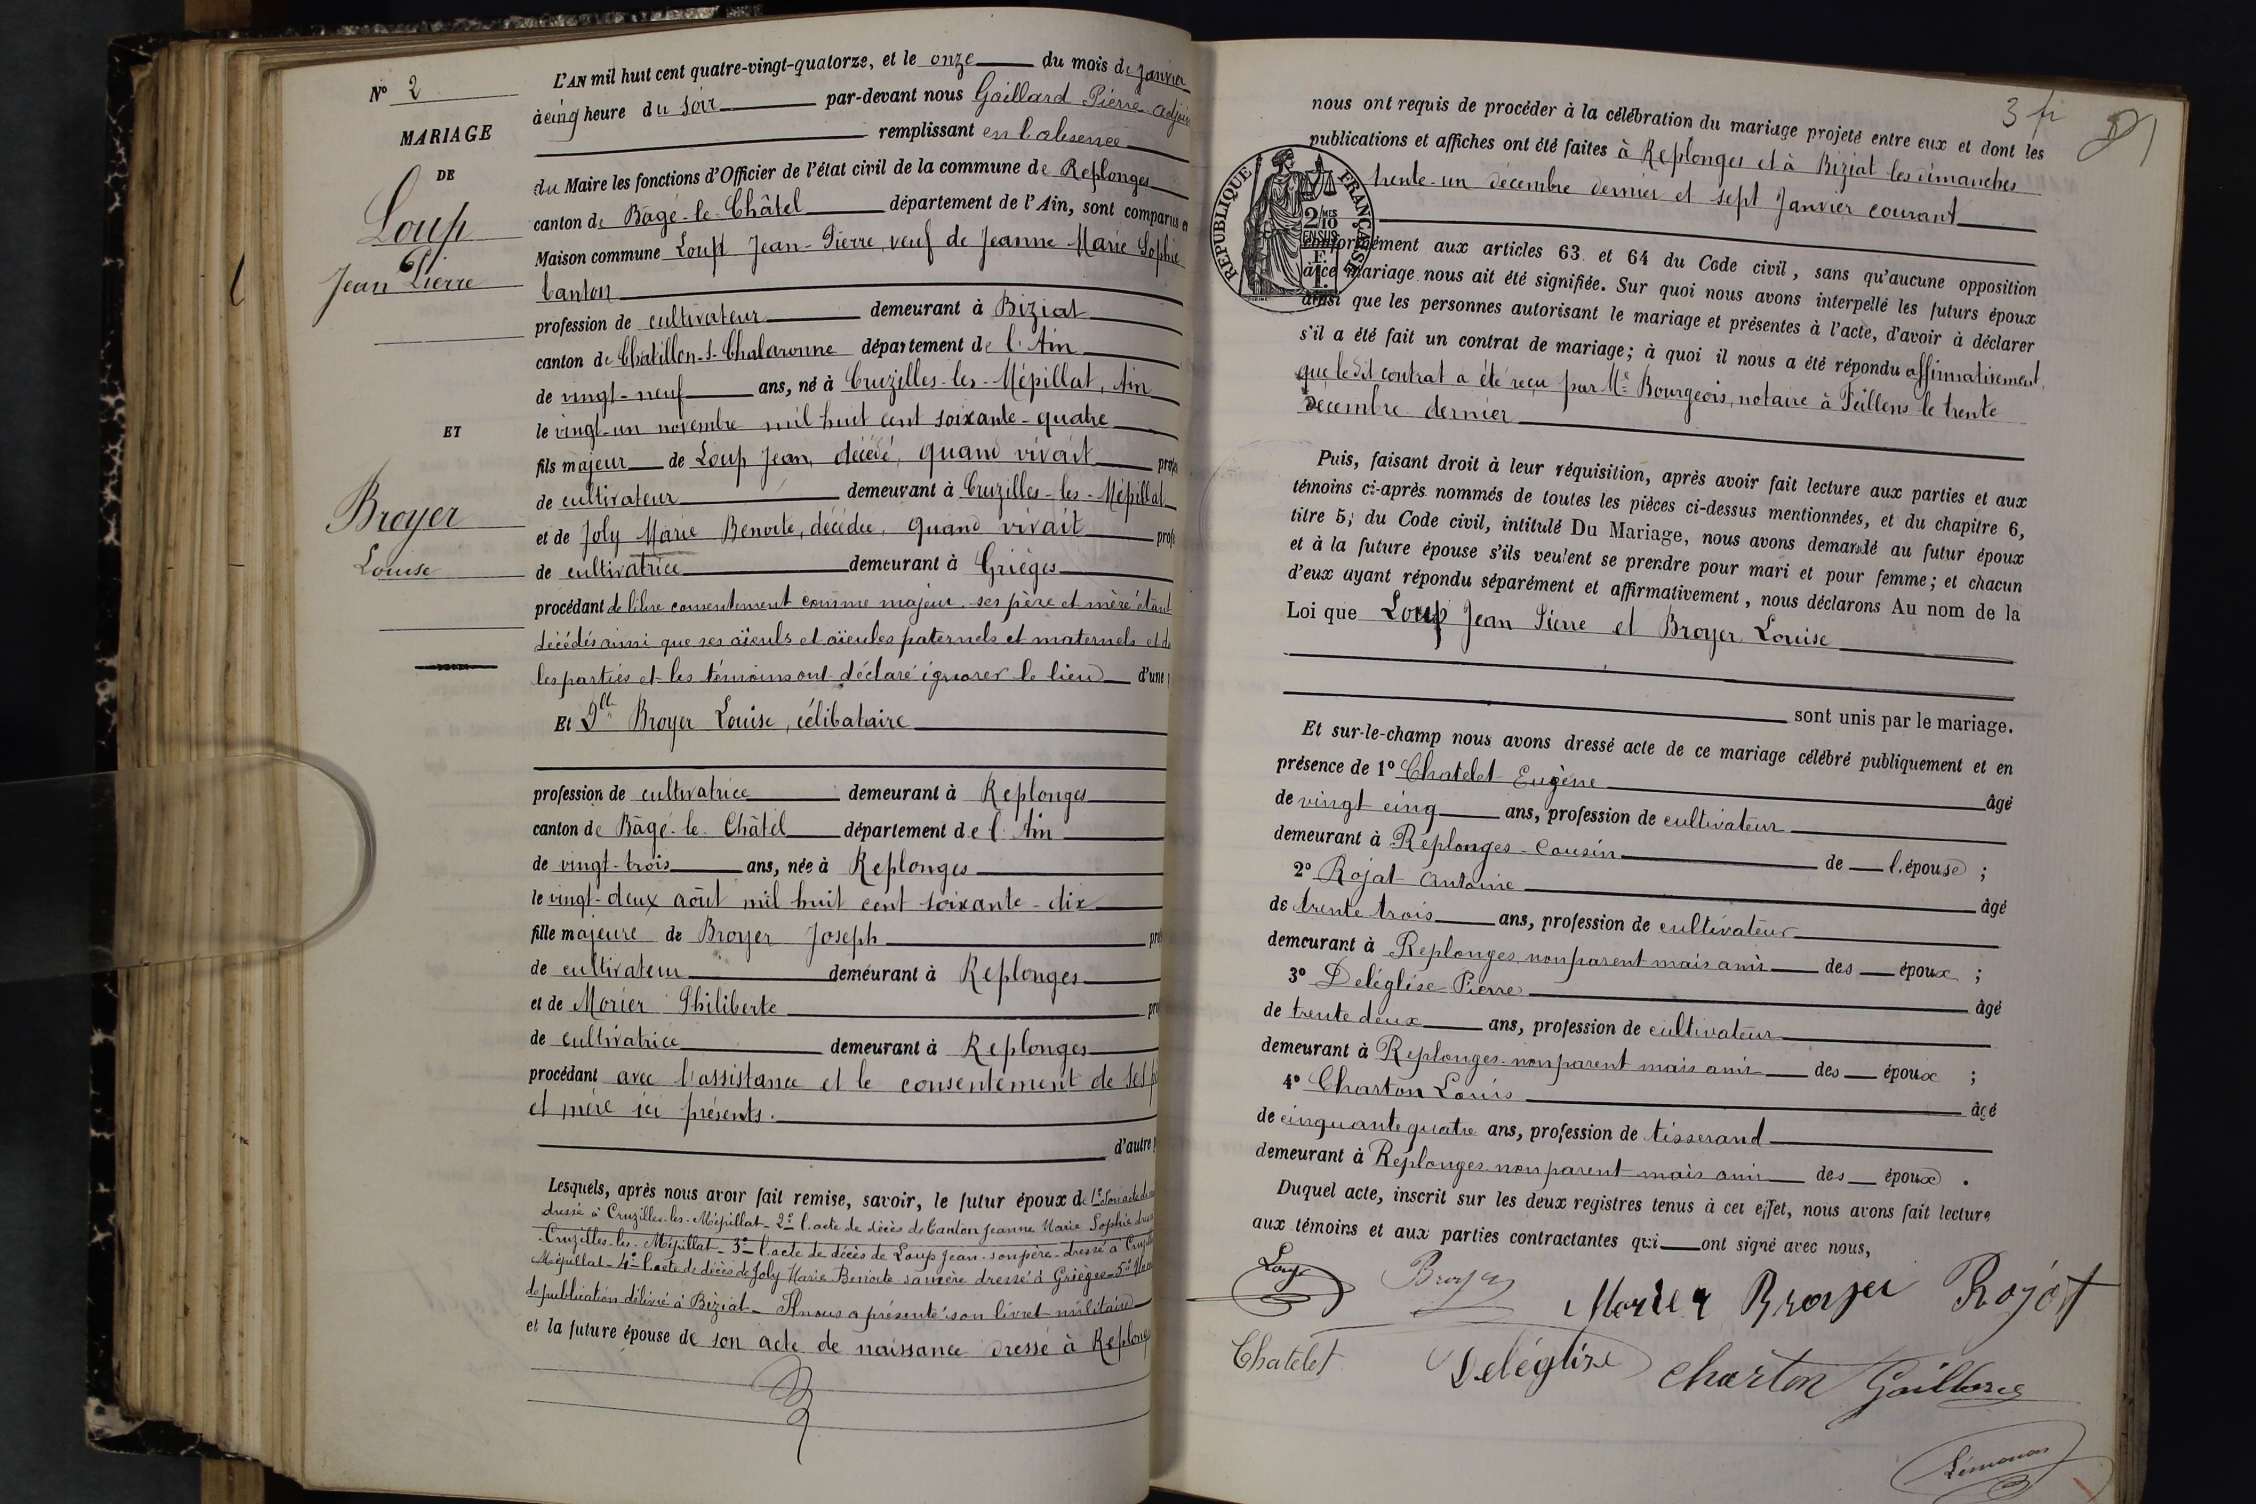 N° 2
MARIAGE
DE
Loup
Jean Pierre
ET
Broyer
Louise
L'AN mil huit cent quatre-vingt-quatorze, et le onze du mois de Janvier
à cinq heure du soir par-devant nous Gaillard Pierre adjoin
remplissant en l'absence
du Maire les fonctions d'Officier de l'état civil de la commune de Replonges
canton de Bâgé-le-Châtel département de l'Ain, sont comparus en
Maison commune Loup Jean-Pierre, veuf de Jeanne Marie Sophie
Canton
profession de cultivateur demeurant à Biziat
canton de Chatillon-s-Chalaronne département de l'Ain
de vingt-neuf ans, né à Cruzilles-les-Mépillat, Ain
le vingt-un novembre mil huit cent soixante-quatre
fils majeur de Loup Jean, décédé, quand vivait profes
de cultivateur demeurant à Cruzilles-les-Mépillat
et de Joly Marie Benoite, décédée, quand vivait profes
de cultivatrice demeurant à Grièges
procédant de libre consentement comme majeur, ses père et mère étant
décédés ainsi que ses aïeuls et aïeules paternels et maternels et do
les parties et les témoins ont déclaré ignorer le lieu d'une p
Et Dlle Broyer Louise, célibataire
profession de cultivatrice demeurant à Replonges
canton de Bâgé-le-Châtel département de l'Ain
de vingt-trois ans, née à Replonges
le vingt-deux août mil huit cent soixante-dix
fille majeure de Broyer Joseph pro
de cultivateur demeurant à Replonges
et de Morier Philiberte pro
de cultivatrice demeurant à Replonges
procédant avec l'assistance et le consentement de ses p
et mère ici présents.
d'autre p
Lesquels, après nous avoir fait remise, savoir, le futur époux de 1° son acte de
dressé à Cruzilles-les-Mépillat - 2° l'acte de décès de Canton Jeanne Marie Sophie dres
Cruzilles-les-Mépillat - 3° l'acte de décès de Loup Jean son père dressé à Cruzill
Mépillat - 4° l'acte de décès de Joly Marie Benoite sa mère dressé à Grièges - 5°
de publication délivré à Biziat - Il nous a présenté son livret militaire
et la future épouse de son acte de naissance dressé à Replong
3 fi
nous ont requis de procéder à la célébration du mariage projeté entre eux et dont les
publications et affiches ont été faites à Replonges et à Biziat les dimanches
trente-un décembre dernier et sept Janvier courant
RÉPUBLIQUE FRANÇAISE
2/10 MES
EN SUS
conformément aux articles 63 et 64 du Code civil, sans qu'aucune opposition
à ce mariage nous ait été signifiée. Sur quoi nous avons interpellé les futurs époux
ainsi que les personnes autorisant le mariage et présentes à l'acte, d'avoir à déclarer
s'il a été fait un contrat de mariage; à quoi il nous a été répondu affirmativement
que ledit contrat a été reçu par Me Bourgeois, notaire à Feillens le trente
décembre dernier
Puis, faisant droit à leur réquisition, après avoir fait lecture aux parties et aux
témoins ci-après nommés de toutes les pièces ci-dessus mentionnées, et du chapitre 6,
titre 5, du Code civil, intitulé Du Mariage, nous avons demandé au futur époux
et à la future épouse s'ils veulent se prendre pour mari et pour femme; et chacun
d'eux ayant répondu séparément et affirmativement, nous déclarons Au nom de la
Loi que Loup Jean Pierre et Broyer Louise
sont unis par le mariage.
Et sur-le-champ nous avons dressé acte de ce mariage célébré publiquement et en
présence de 1° Chatelet Eugène âgé
de vingt cinq ans, profession de cultivateur
demeurant à Replonges - cousin de l'épouse ;
2° Rojat Antoine âgé
de trente trois ans, profession de cultivateur
demeurant à Replonges non parent mais ami des époux ;
3° Deléglise Pierre âgé
de trente deux ans, profession de cultivateur
demeurant à Replonges non parent mais ami des époux ;
4° Charton Louis âgé
de cinquante quatre ans, profession de tisserand
demeurant à Replonges non parent mais ami des époux .
Duquel acte, inscrit sur les deux registres tenus à cet effet, nous avons fait lecture
aux témoins et aux parties contractantes qui ont signé avec nous,
Loup Broyer Morier Broyer Rojat
Chatelet Deléglise Charton Gaillard